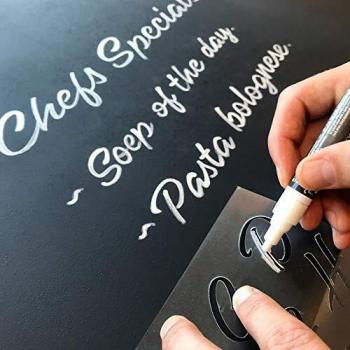 Chefs Special
~ Soep of the day.
~ Pasta bolognese.